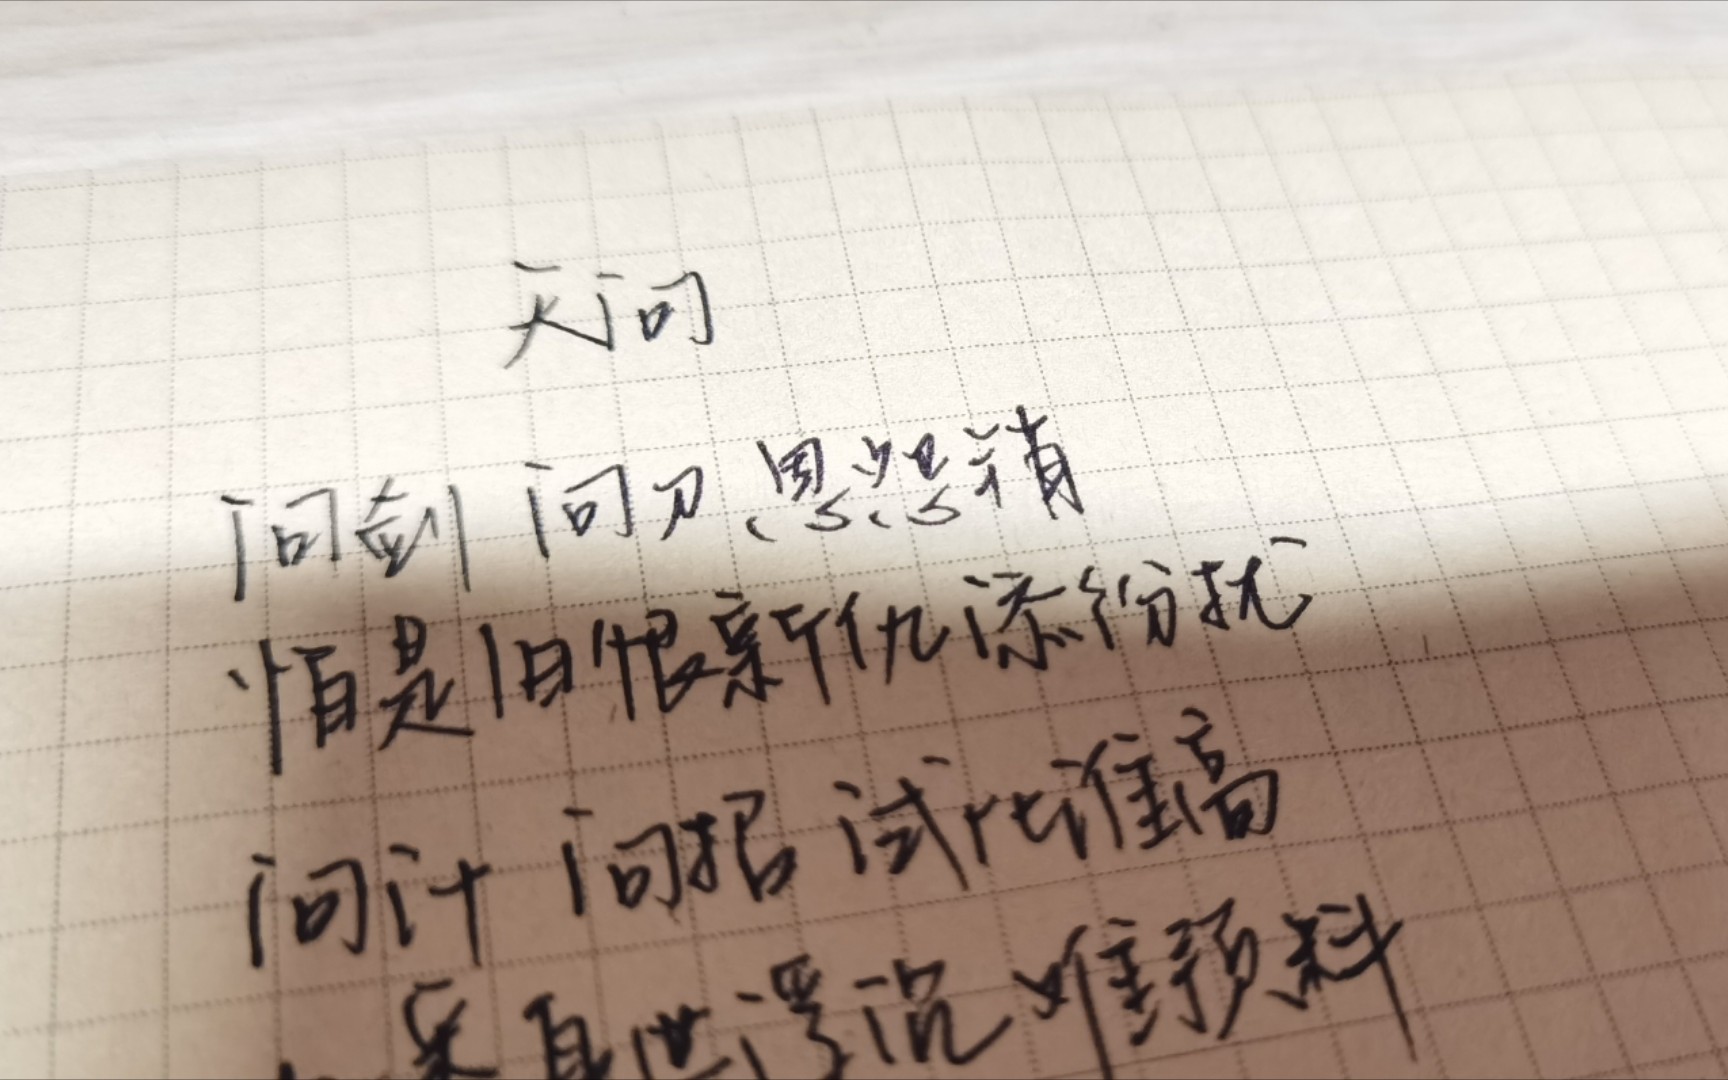 天问
问剑 问刀 恩怨消
怕是旧恨新仇添纷扰
问计 问招 试比谁高
乐 身世浮沉难预料